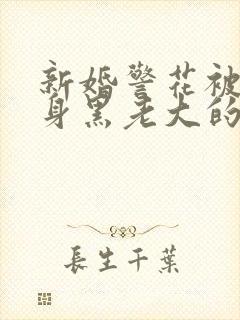 新婚警花被
身黑老大的
長生千葉